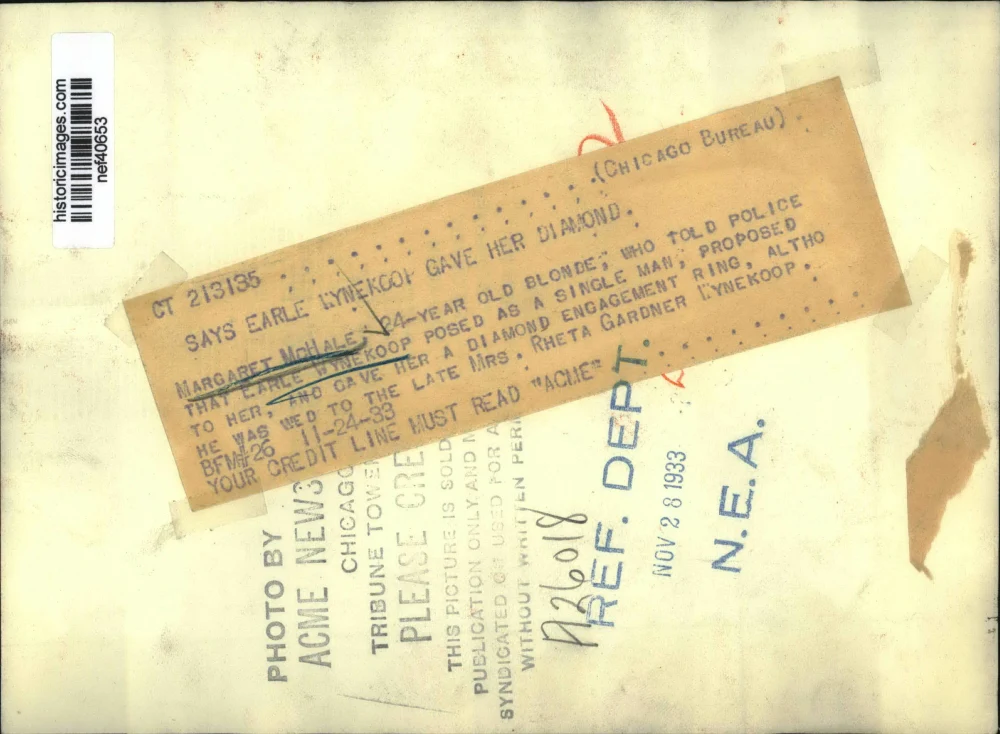 historicimages.com
nef40653
CT 213135 . . . . . . . . . . . . . (CHICAGO BUREAU)
SAYS EARLE WYNEKOOP GAVE HER DIAMOND.
MARGARET MCHALE, 24-YEAR OLD BLONDE, WHO TOLD POLICE
THAT EARLE WYNEKOOP POSED AS A SINGLE MAN, PROPOSED
TO HER, AND GAVE HER A DIAMOND ENGAGEMENT RING, ALTHO
HE WAS WED TO THE LATE MRS. RHETA GARDNER WYNEKOOP.
BFM+26 11-24-33
YOUR CREDIT LINE MUST READ "ACME"
PHOTO BY
ACME NEWS
CHICAGO
TRIBUNE TOWER
PLEASE CRE
THIS PICTURE IS SOLD
PUBLICATION ONLY AND
SYNDICATED OR USED FOR A
WITHOUT WRITTEN PER
A26018
REF. DEPT.
NOV 28 1933
N.E.A.